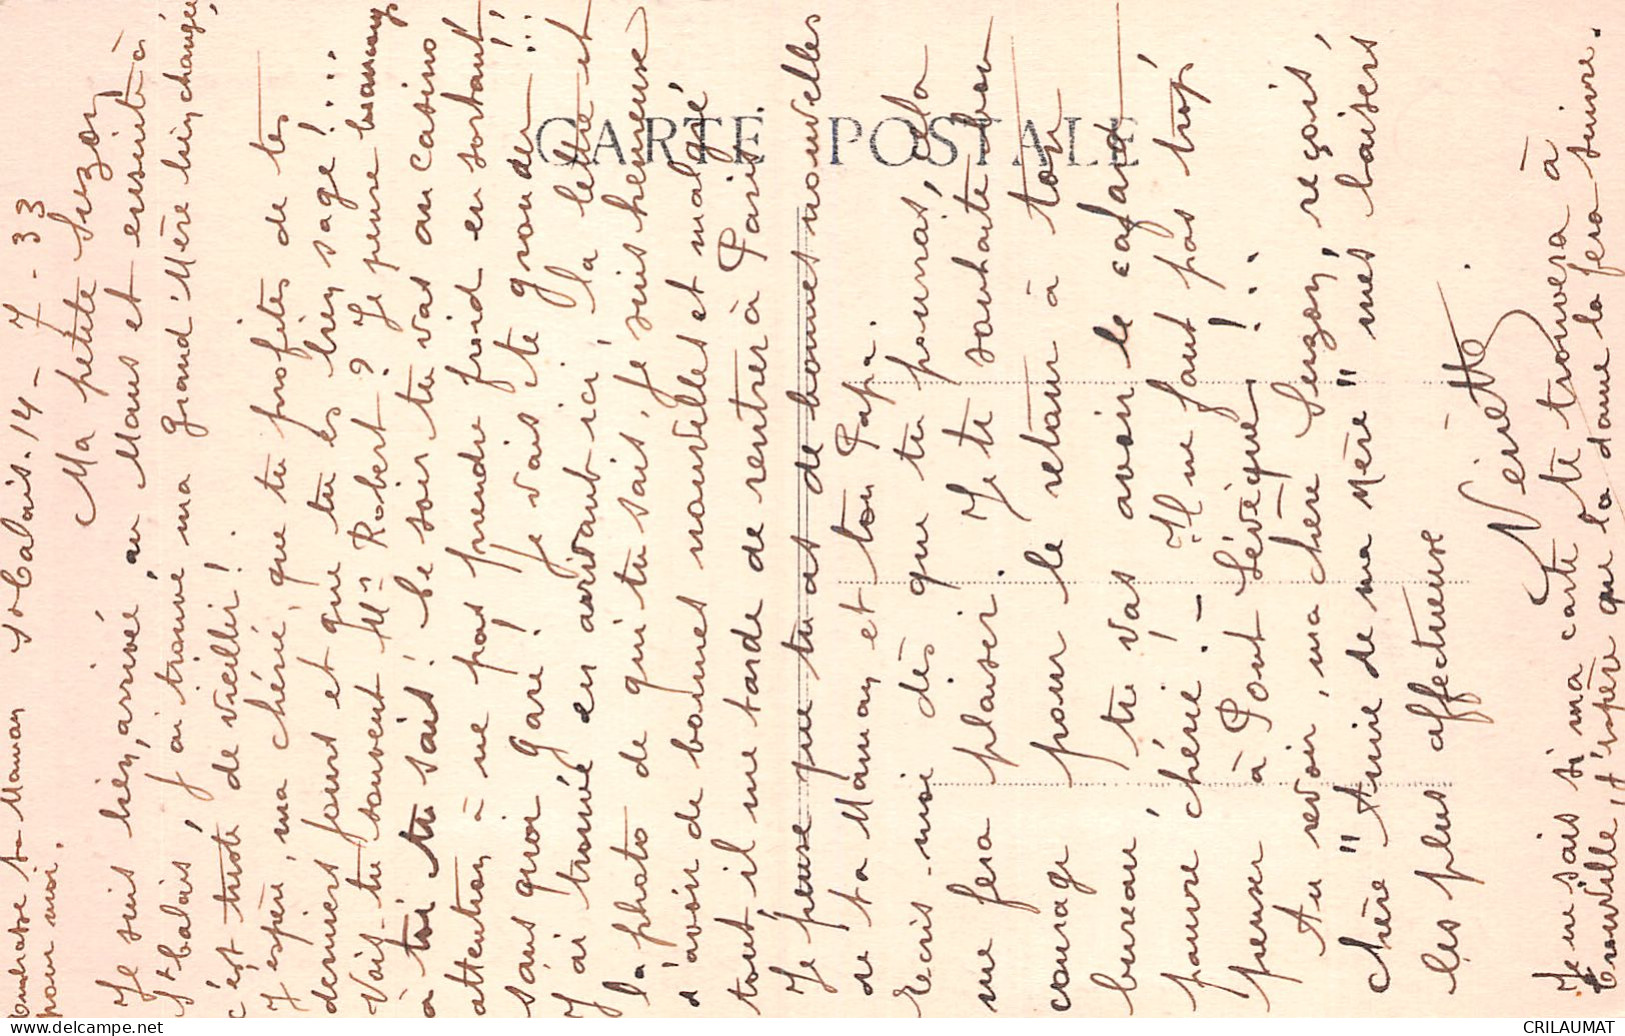 Embrasse ta Maman
pour moi.
St Calais. 14 - 7 - 33
Ma petite Suzon
Je suis bien arrivée, au Mans et ensuite à
St Calais, j'ai trouvé ma Grand'Mère bien changée,
c'est triste de vieillir!
J'espère, ma chérie, que tu profites de tes
derniers jours et que tu es bien sage!...
Vois-tu souvent Mr Robert? Je pense beaucoup
à toi tu sais! Ce soir tu vas au casino
attention à ne pas prendre froid en sortant!
sans quoi Gare! Je vais te gronder!!!
J'ai trouvé en arrivant ici, la lettre et
la photo de qui tu sais, je suis heureuse
d'avoir de bonnes nouvelles et malgré
tout il me tarde de rentrer à Paris.
CARTE POSTALE
Je pense que tu as de bonnes nouvelles
de ta Maman et ton Papa.
Ecris-moi dès que tu pourras, cela
me fera plaisir. Je te souhaite bon
courage pour le retour à ton
bureau, tu vas avoir le cafard
pauvre chérie! - Il ne faut pas trop
penser à Pont Lévêque!...
Au revoir, ma chère Suzon, reçois,
chère "Amie de ma Mère" mes baisers
les plus affectueux
Ninette.
Je ne sais si ma carte te trouvera à
Trouville, j'espère que la dame la fera suivre.
CRILAUMAT